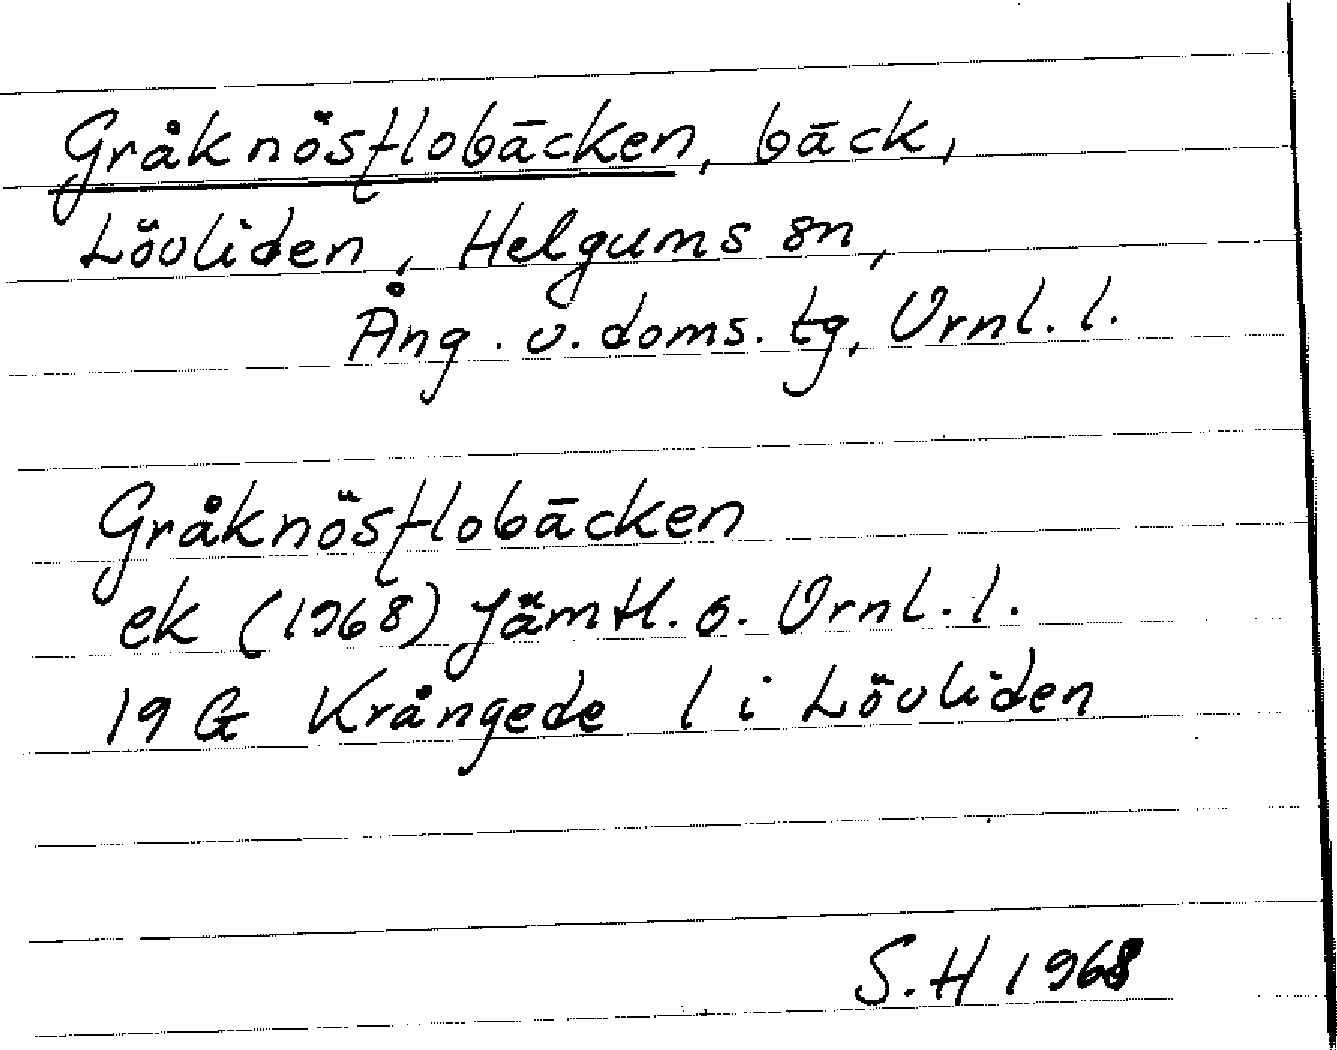 Gråknösflobäcken, bäck,
Lövliden, Helgums sn,
Ång. v. doms. tg, Vrnl. l.
Gråknösflobäcken
ek (1968) Jämtl. o. Vrnl. l.
19 G Krångede l i Lövliden
S.H 1968